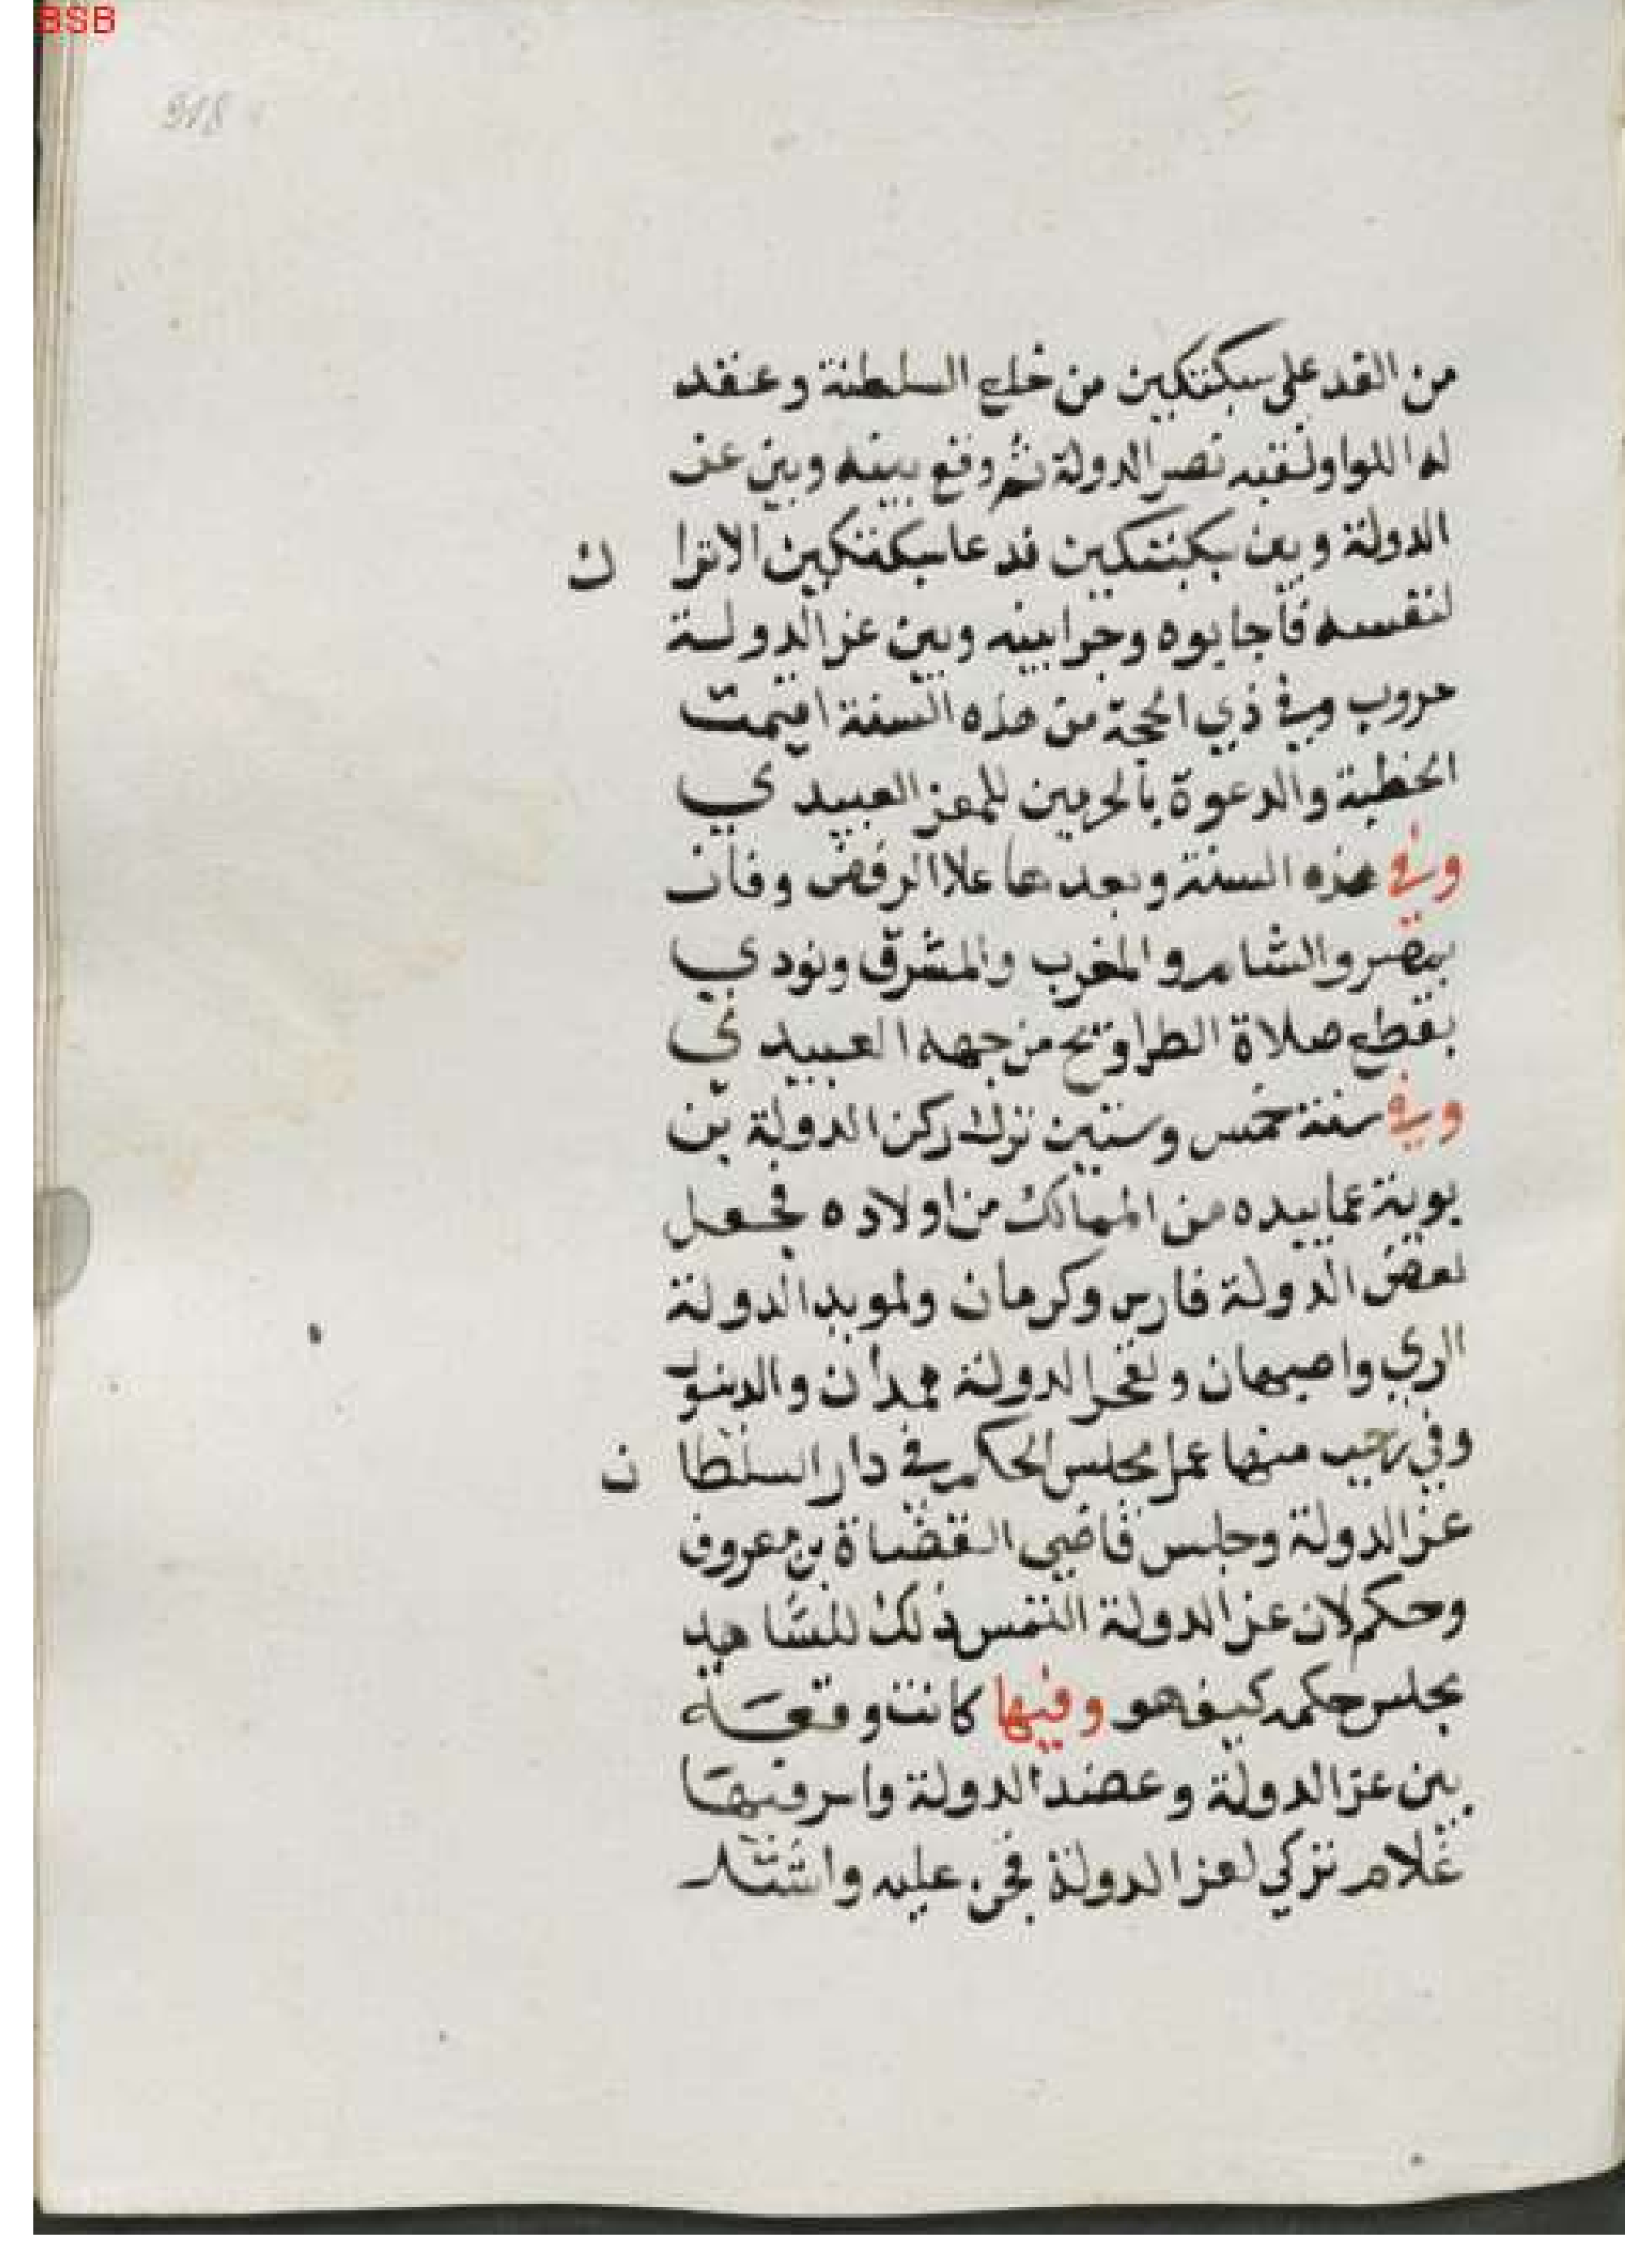 BSB
318
من الغد على سبكتكين من خلع السلطنة وعقد
له اللوا ولقبه نصر الدولة ثم وقع بينه وبين عز
الدولة وبين بكبتكين فدعا سبكتكين الاترا ك
لنفسه فأجابوه وجرا بينه وبين عز الدولة
حروب وفي ذي الحجة من هذه السنة اقيمت
الخطبة والدعوة بالحرمين للمعز العبيدي
وفي هذه السنة وبعدها علا الرفض وفان
بمصر والشام والمغرب والمشرق ونودي
بقطع صلاة الطراويح من جهه العبيدي
وفي سنة خمس وستين نزل ركن الدولة بن
بوية عما بيده من الممالك من اولاده فجعل
لعضد الدولة فارس وكرمان ولمويد الدولة
الري واصبهان ولفخر الدولة همدان والدينو
وفي رجب منها عمل مجلس الحكم في دار السلطا ن
عز الدولة وجلس قاضي القضاة بن معروف
وحكم لان عز الدولة التمس ذلك لليشاهد
مجلس حكمه كيف هو وفيها كانت وقعة
بين عز الدولة وعضد الدولة واسر فيها
غلام تركي لعز الدولة فجن عليه واشتد